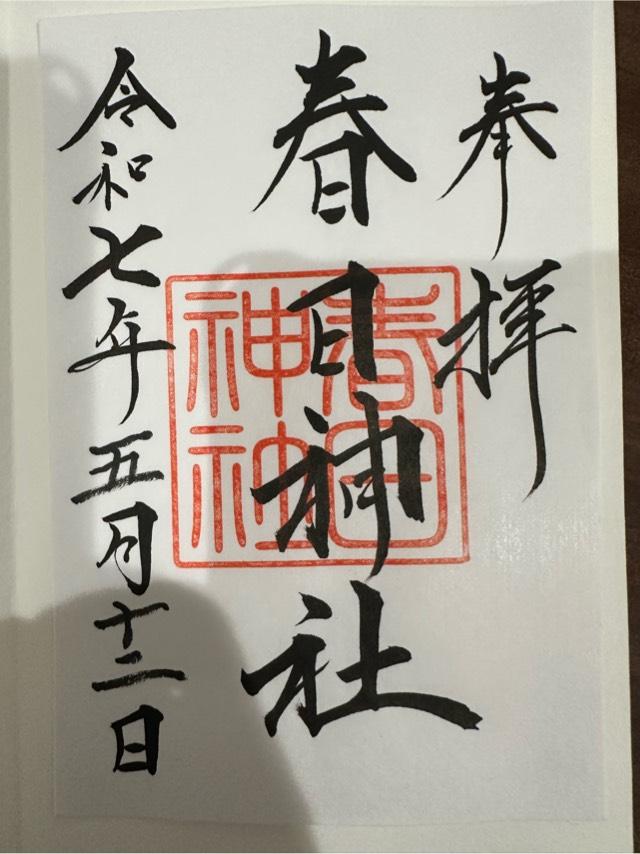 奉拝
春日神社
春日
神社
令和七年五月十二日